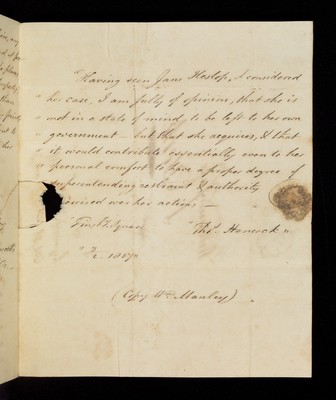 "Having seen Jane Heslop, & considered
" her case, I am fully of opinion, that she is
" not in a state of mind, to be left to her own
" government – but that she requires, & that
" it would contribute essentially even to her
" personal comfort to have a proper degree of
superintending restraint & authority
exercised over her actions –
"Finsby. Square
"Thos. Hancock"
1807
(Copy Wm. Manley)